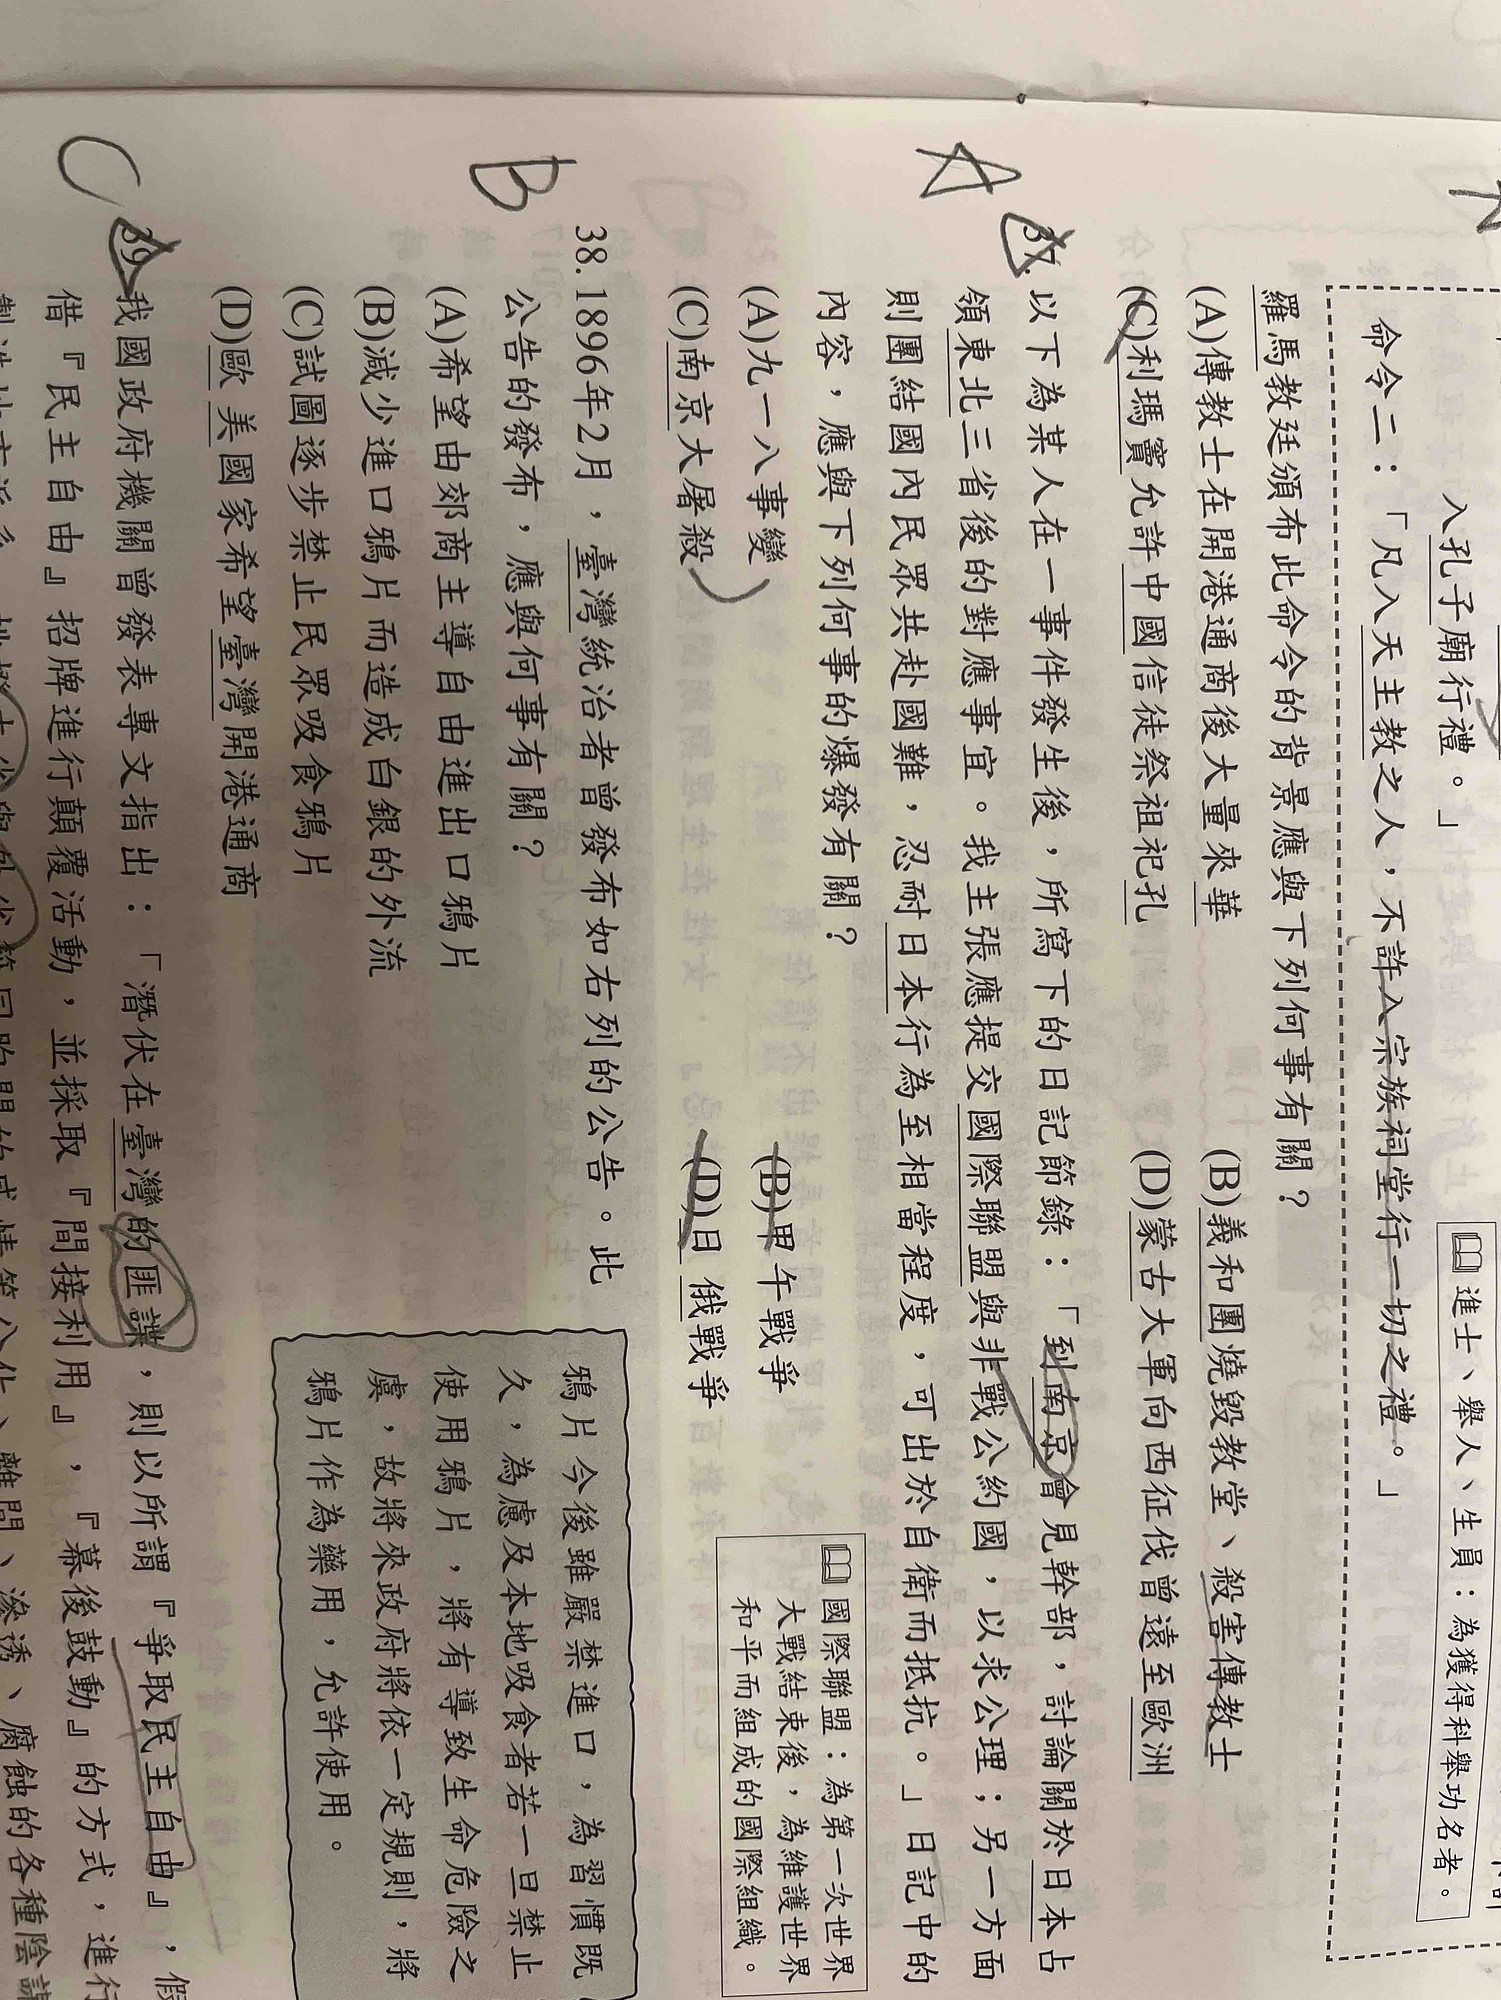 入孔子廟行禮。」
命令二：「凡入天主教之人，不許入宗族祠堂行一切之禮。」
進士、舉人、生員：為獲得科舉功名者。
羅馬教廷頒布此命令的背景應與下列何事有關？
(A)傳教士在開港通商後大量來華
(B)義和團燒毀教堂、殺害傳教士
(C)利瑪竇允許中國信徒祭祖祀孔
(D)蒙古大軍向西征伐曾遠至歐洲
A
37.以下為某人在一事件發生後，所寫下的日記節錄：「到南京會見幹部，討論關於日本占
領東北三省後的對應事宜。我主張應提交國際聯盟與非戰公約國，以求公理；另一方面
則團結國內民眾共赴國難，忍耐日本行為至相當程度，可出於自衛而抵抗。」日記中的
內容，應與下列何事的爆發有關？
(A)九一八事變
(B)甲午戰爭
(C)南京大屠殺
(D)日俄戰爭
國際聯盟：為第一次世界
大戰結束後，為維護世界
和平而組成的國際組織。
B
38.1896年2月，臺灣統治者曾發布如右列的公告。此
公告的發布，應與何事有關？
(A)希望由郊商主導自由進出口鴉片
(B)減少進口鴉片而造成白銀的外流
(C)試圖逐步禁止民眾吸食鴉片
(D)歐美國家希望臺灣開港通商
鴉片今後雖嚴禁進口，為習慣既
久，為慮及本地吸食者若一旦禁止
使用鴉片，將有導致生命危險之
虞，故將來政府將依一定規則，將
鴉片作為藥用，允許使用。
C
39.我國政府機關曾發表專文指出：「潛伏在臺灣的匪諜，則以所謂『爭取民主自由』，假
借『民主自由』招牌進行顛覆活動，並採取『間接利用』，『幕後鼓動』的方式，進行